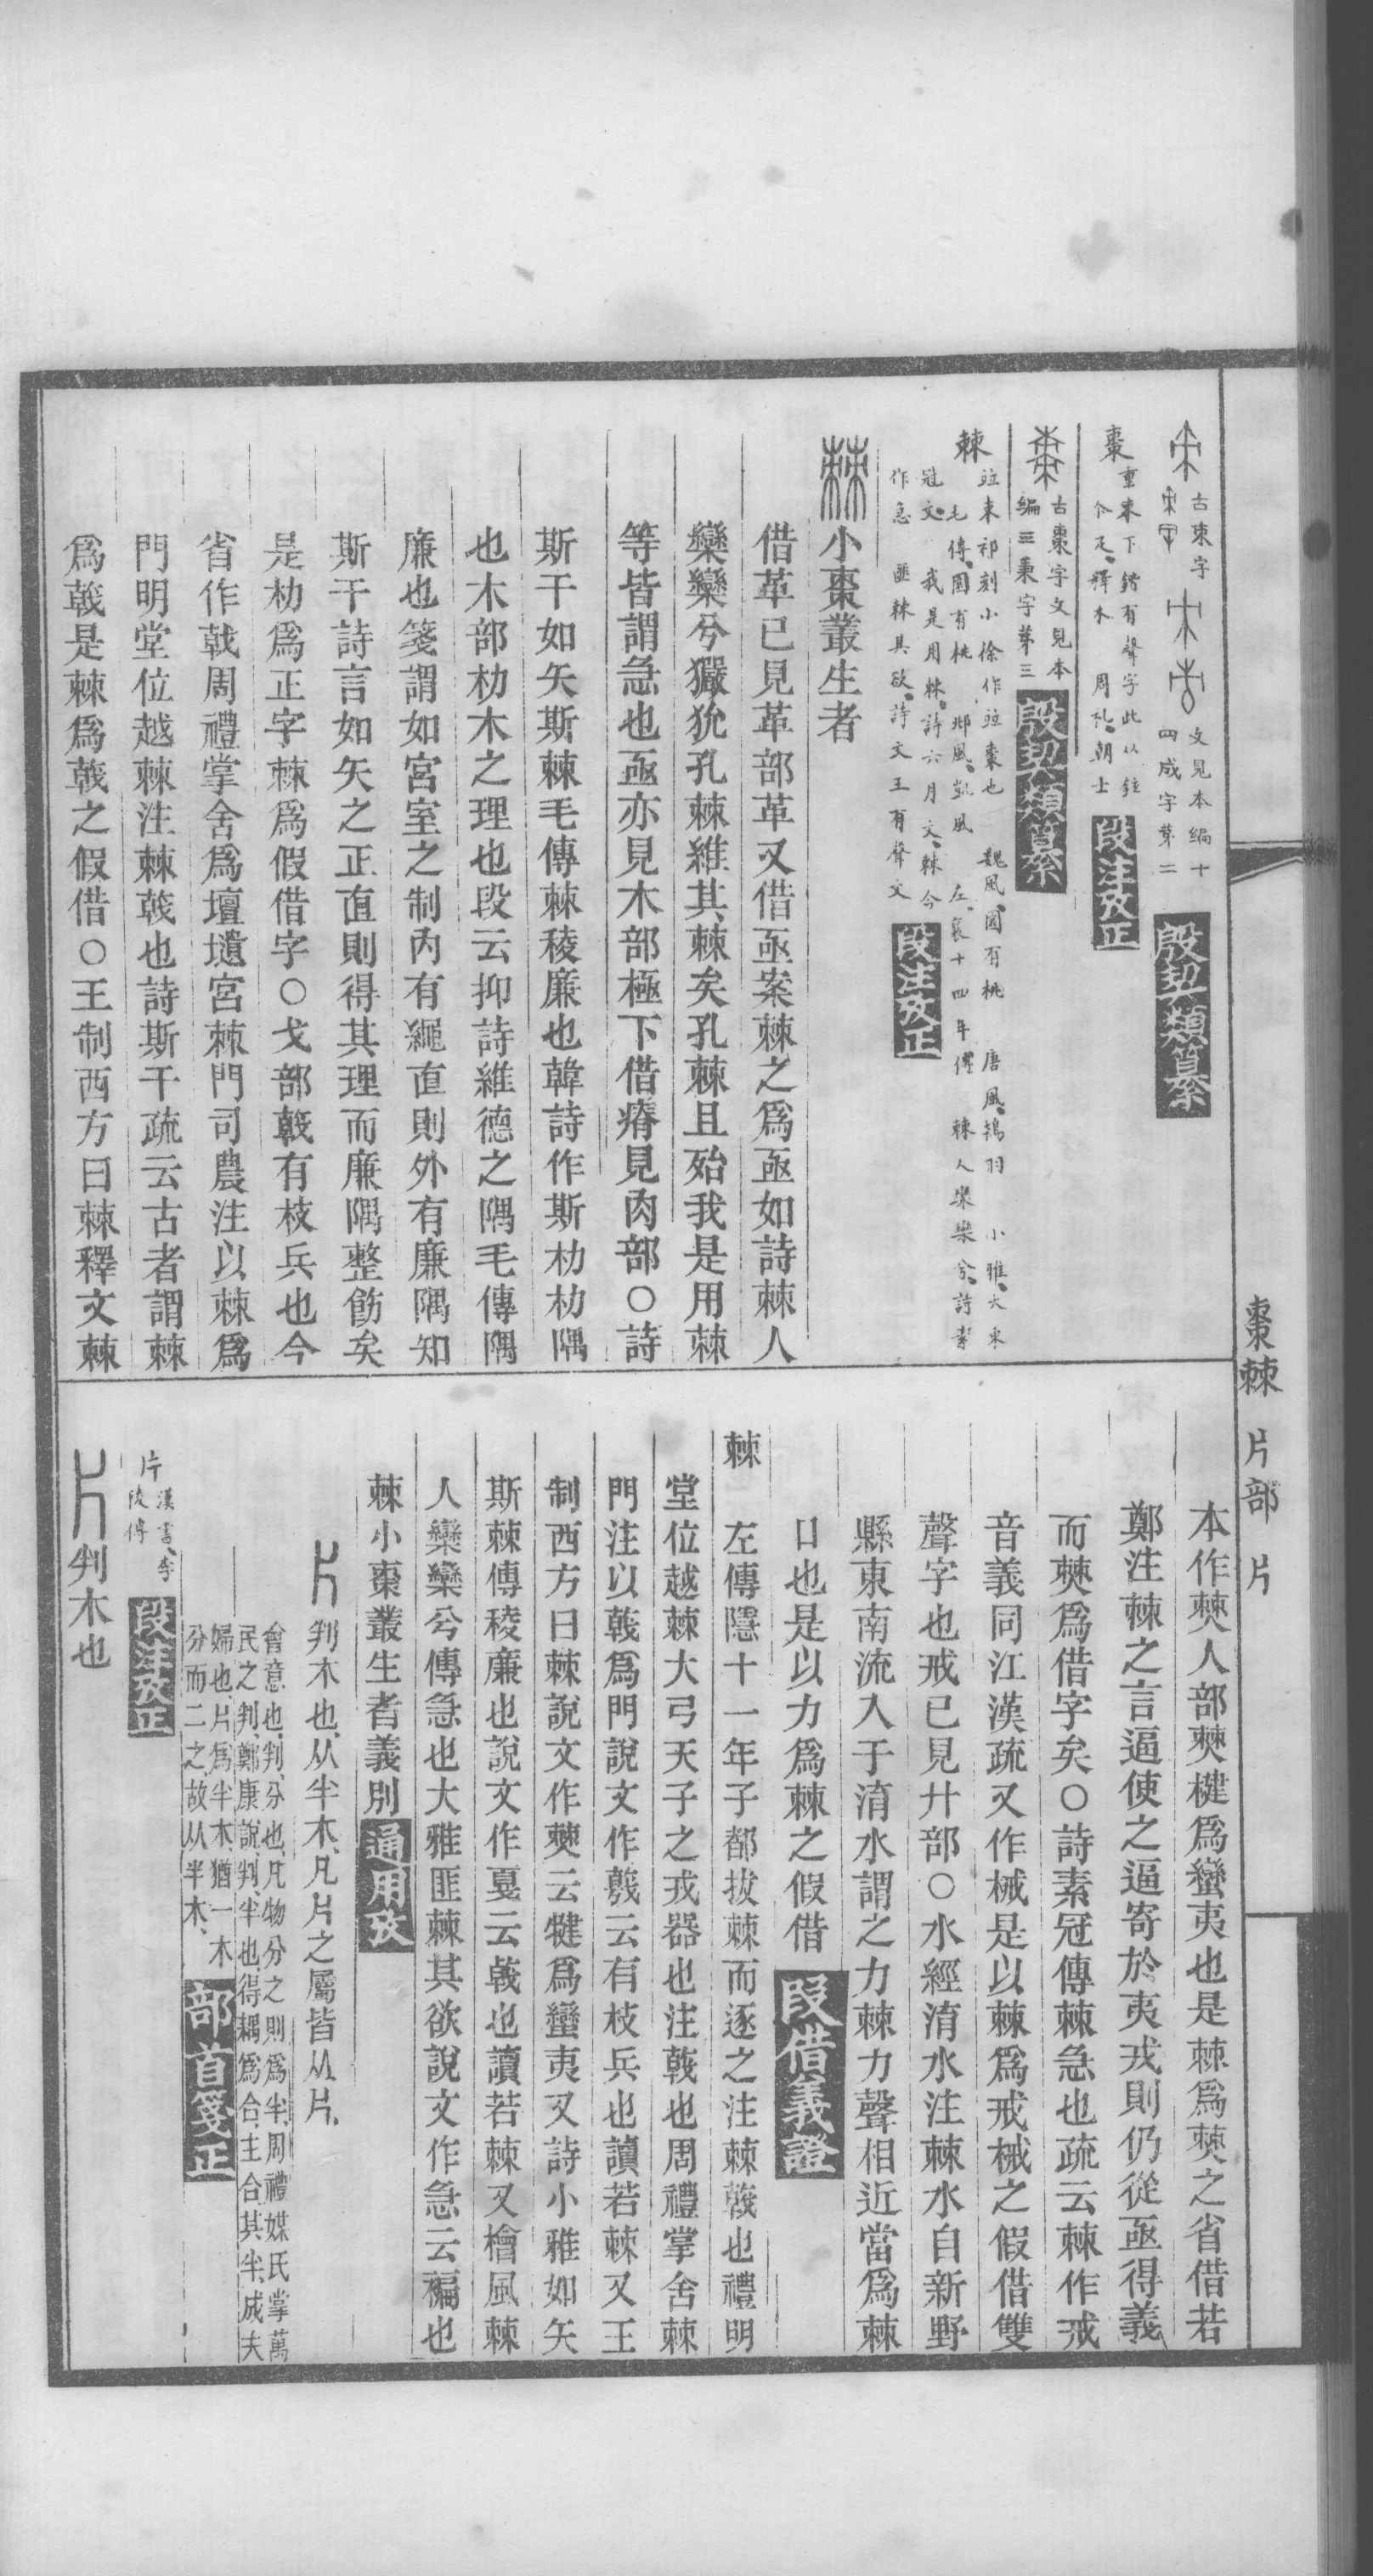 古朿字
文見本編十
四咸字第二
殷契類纂
棗
重朿下鍇有聲字此以鉉
个足、釋木 周礼、朝士
段注攷正
古棗字文見本
編三棗字第三
殷契類纂
棘
竝朿祁刻小徐作竝棗也 魏風、園有桃 唐風、鴇羽 小雅、大東
毛傳、園有桃 邶風、凱風 左、襄十四年傳 棘人欒欒兮、詩素
冠文、我是用棘、詩六月文、棘今
作急 匪棘其欲、詩文王有聲文
段注攷正
小棗叢生者
借革已見革部革又借亟案棘之爲亟如詩棘人
欒欒兮玁狁孔棘維其棘矣孔棘且殆我是用棘
等皆謂急也亟亦見木部極下借瘠見肉部○詩
斯干如矢斯棘毛傳棘稜廉也韓詩作斯朸朸隅
也木部朸木之理也段云抑詩維德之隅毛傳隅
廉也箋謂如宮室之制內有繩直則外有廉隅知
斯干詩言如矢之正直則得其理而廉隅整飭矣
是朸爲正字棘爲假借字○戈部戟有枝兵也今
省作戟周禮掌舍爲壇壝宮棘門司農注以棘爲
門明堂位越棘注棘戟也詩斯干疏云古者謂棘
爲戟是棘爲戟之假借○王制西方曰棘釋文棘
棗棘 片部 片
本作僰人部僰楗爲蠻夷也是棘爲僰之省借若
鄭注棘之言逼使之逼寄於夷戎則仍從亟得義
而僰爲借字矣○詩素冠傳棘急也疏云棘作戒
音義同江漢疏又作械是以棘爲戒械之假借雙
聲字也戒已見廾部○水經淯水注棘水自新野
縣東南流入于淯水謂之力棘力聲相近當爲棘
口也是以力爲棘之假借
段借義證
棘
左傳隱十一年子都拔棘而逐之注棘戟也禮明
堂位越棘大弓天子之戎器也注戟也周禮掌舍棘
門注以戟爲門說文作戟云有枝兵也讀若棘又王
制西方曰棘說文作僰云犍爲蠻夷又詩小雅如矢
斯棘傳稜廉也說文作戛云戟也讀若棘又檜風棘
人欒欒兮傳急也大雅匪棘其欲說文作急云褊也
棘小棗叢生者義別
通用攷
判木也、从半木、凡片之屬皆从片、
會意也、判、分也、凡物分之則爲半、周禮媒氏掌萬
民之判、鄭康說、判、半也、得耦爲合、主合、其半、成夫
婦也、片爲半木、猶一木
分而二之、故从半木、
部首箋正
片
漢書、李
陵傳
段注攷正
判木也